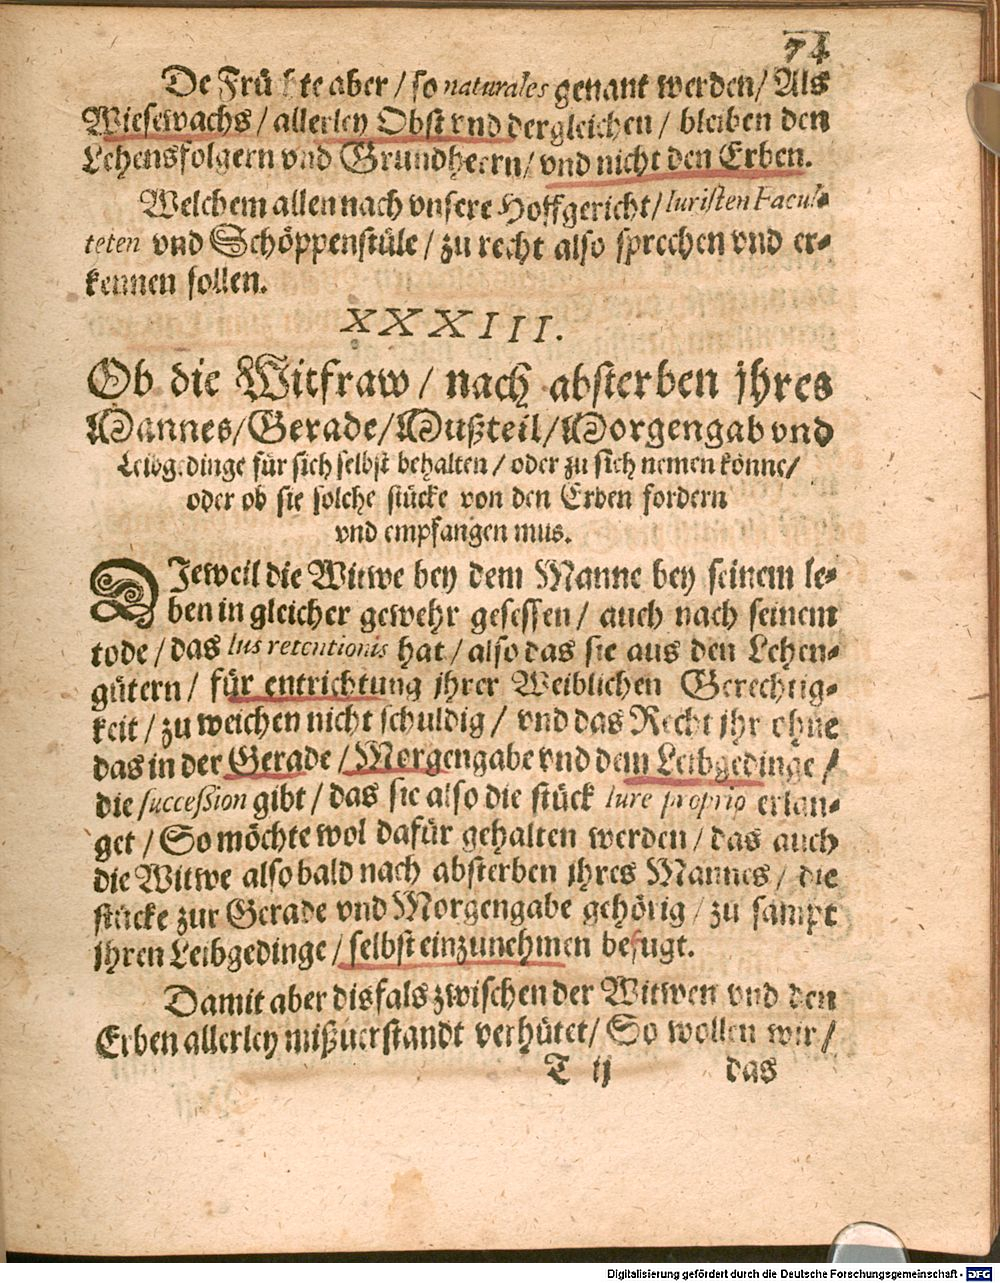 74
De Früchte aber / so naturales genant werden / Als
Wiesewachs / allerley Obst vnd dergleichen / bleiben den
Lehensfolgern vnd Grundherrn / vnd nicht den Erben.
Welchem allen nach vnsere Hoffgericht / Iuristen Facul-
teten vnd Schöppenstüle / zu recht also sprechen vnd er-
kennen sollen.
XXXIII.
Ob die Witfraw / nach absterben jhres
Mannes / Gerade / Mußteil / Morgengab vnd
Leibgedinge für sich selbst behalten / oder zu sich nemen könne /
oder ob sie solche stücke von den Erben fordern
vnd empfangen mus.
DJeweil die Witwe bey dem Manne bey seinem le-
ben in gleicher gewehr gesessen / auch nach seinem
tode / das Ius retentionis hat / also das sie aus den Lehen-
gütern / für entrichtung jhrer Weiblichen Gerechtig-
keit / zu weichen nicht schuldig / vnd das Recht jhr ohne
das in der Gerade / Morgengabe vnd dem Leibgedinge /
die succeßion gibt / das sie also die stück Iure proprio erlan-
get / So möchte wol dafür gehalten werden / das auch
die Witwe also bald nach absterben jhres Mannes / die
stücke zur Gerade vnd Morgengabe gehörig / zu sampt
jhren Leibgedinge / selbst einzunehmen befugt.
Damit aber disfals zwischen der Witwen vnd den
Erben allerley mißuerstandt verhütet / So wollen wir /
T ij das
Digitalisierung gefördert durch die Deutsche Forschungsgemeinschaft - DFG